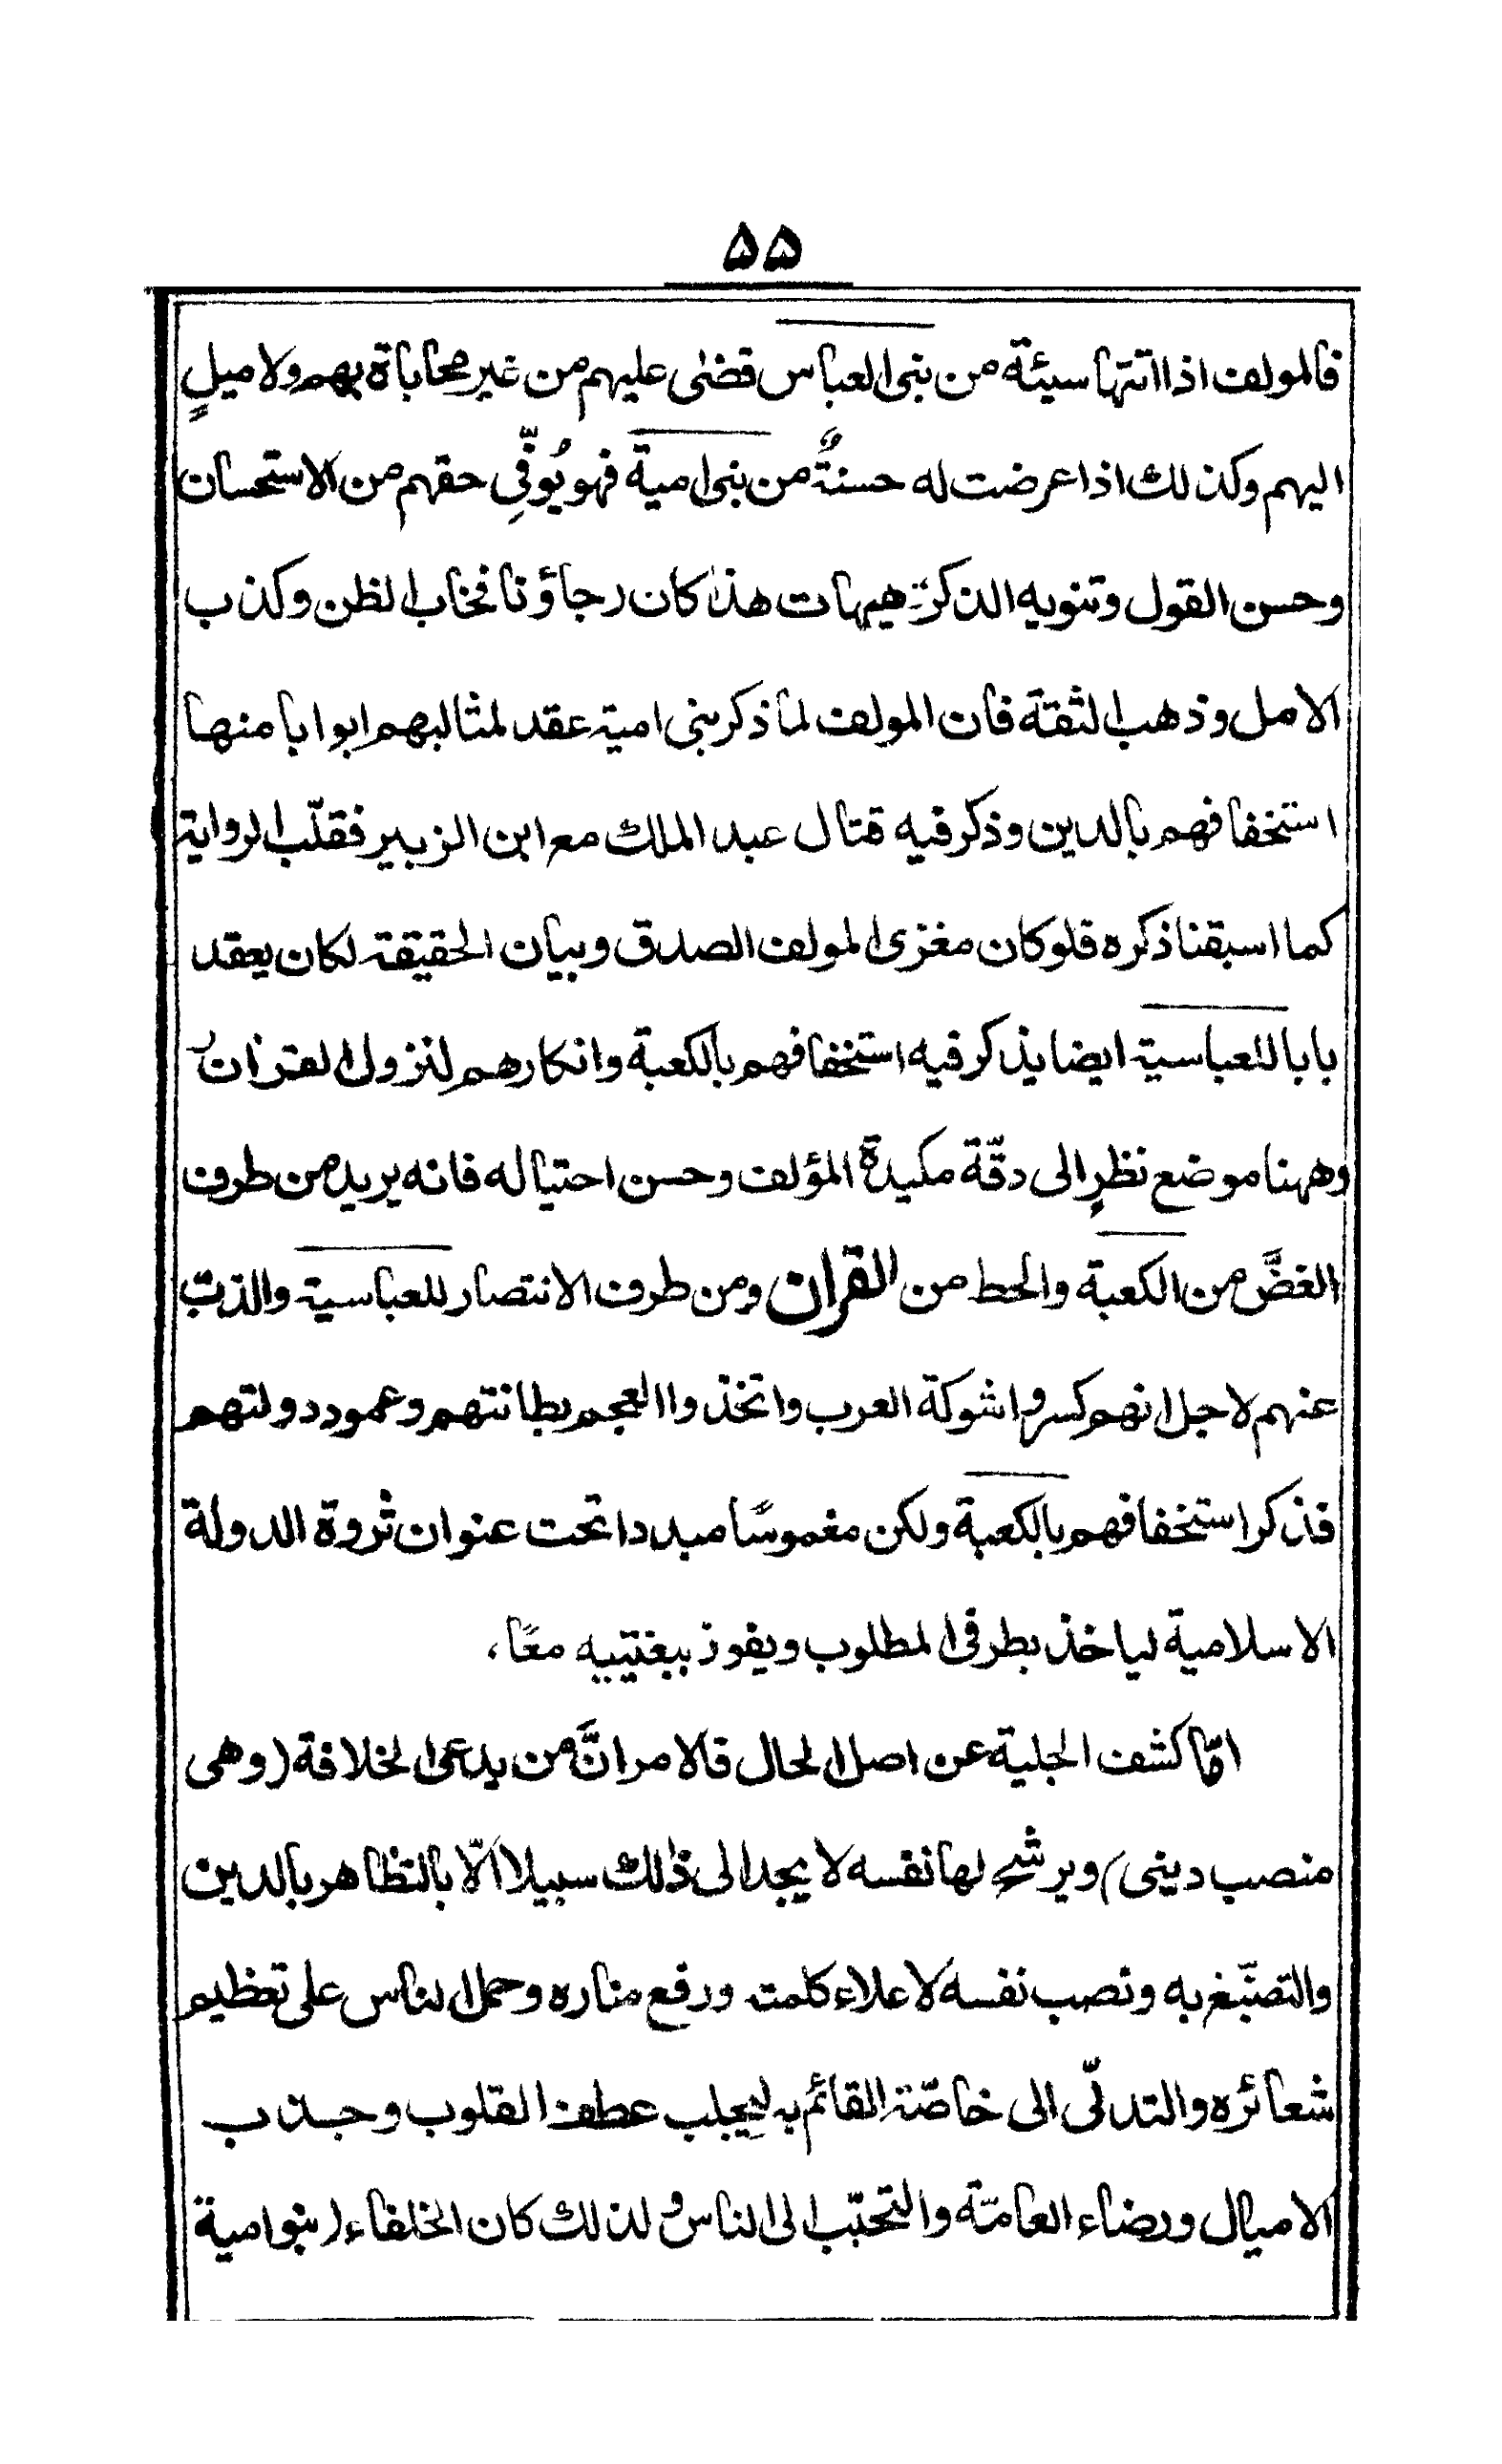 ۵۵
فالمولف اذا اتتها سيئة من بنى العباس قضٰى عليهم من غير محاباة بهم ولا ميلٍ
اليهم وكذلك اذا عرضت له حسنةٌ من بنى امية فهو يُوفّى حقهم من الاستحسان
وحسن القول وتنويه الذكر هيهات هذا كان رجاؤنا فخاب الظن وكذب
الامل وذهب الثقة فان المولف لما ذكر بنى امية عقد لمثالبهم ابوابا منها
استخفافهم بالدين وذكر فيه قتال عبد الملك مع ابن الزبير فقلّب الرواية
كما اسبقنا ذكره فلو كان مغزى المولف الصدق وبيان الحقيقة لكان يعقد
بابا للعباسية ايضا يذكر فيه استخفافهم بالكعبة وانكارهم لنزول القرأن
وههنا موضع نظرٍ الى دقّة مكيدة المؤلف وحسن احتياله فانه يريد من طرف
الغضَّ من الكعبة والحط من القران ومن طرف الانتصار للعباسية والذبّ
عنهم لاجل انهم كسروا شوكة العرب واتخذوا العجم بطانتهم وعمود دولتهم
فذكر استخفافهم بالكعبة ولكن مغموسًا مبددا تحت عنوان ثروة الدولة
الاسلامية لياخذ بطرفى المطلوب ويفوز ببغتييه معًا،
امّا كشف الجلية عن اصل الحال فالامر انَّ من يدعى الخلافة (وهى
منصب دينى) ويرشح لها نفسه لا يجد الى ذٰلك سبيلا الّا بالتظاهر بالدين
والتصبّغ به ونصب نفسه لاعلاء كلمته ورفع مناره وحمل الناس على تعظيم
شعائره والتدلّى الى خاصّته القائم به ليجلب عطف القلوب وجذب
الاميال ورضاء العامّة والتحبّب الى الناس ولذلك كان الخلفاء (بنو امية